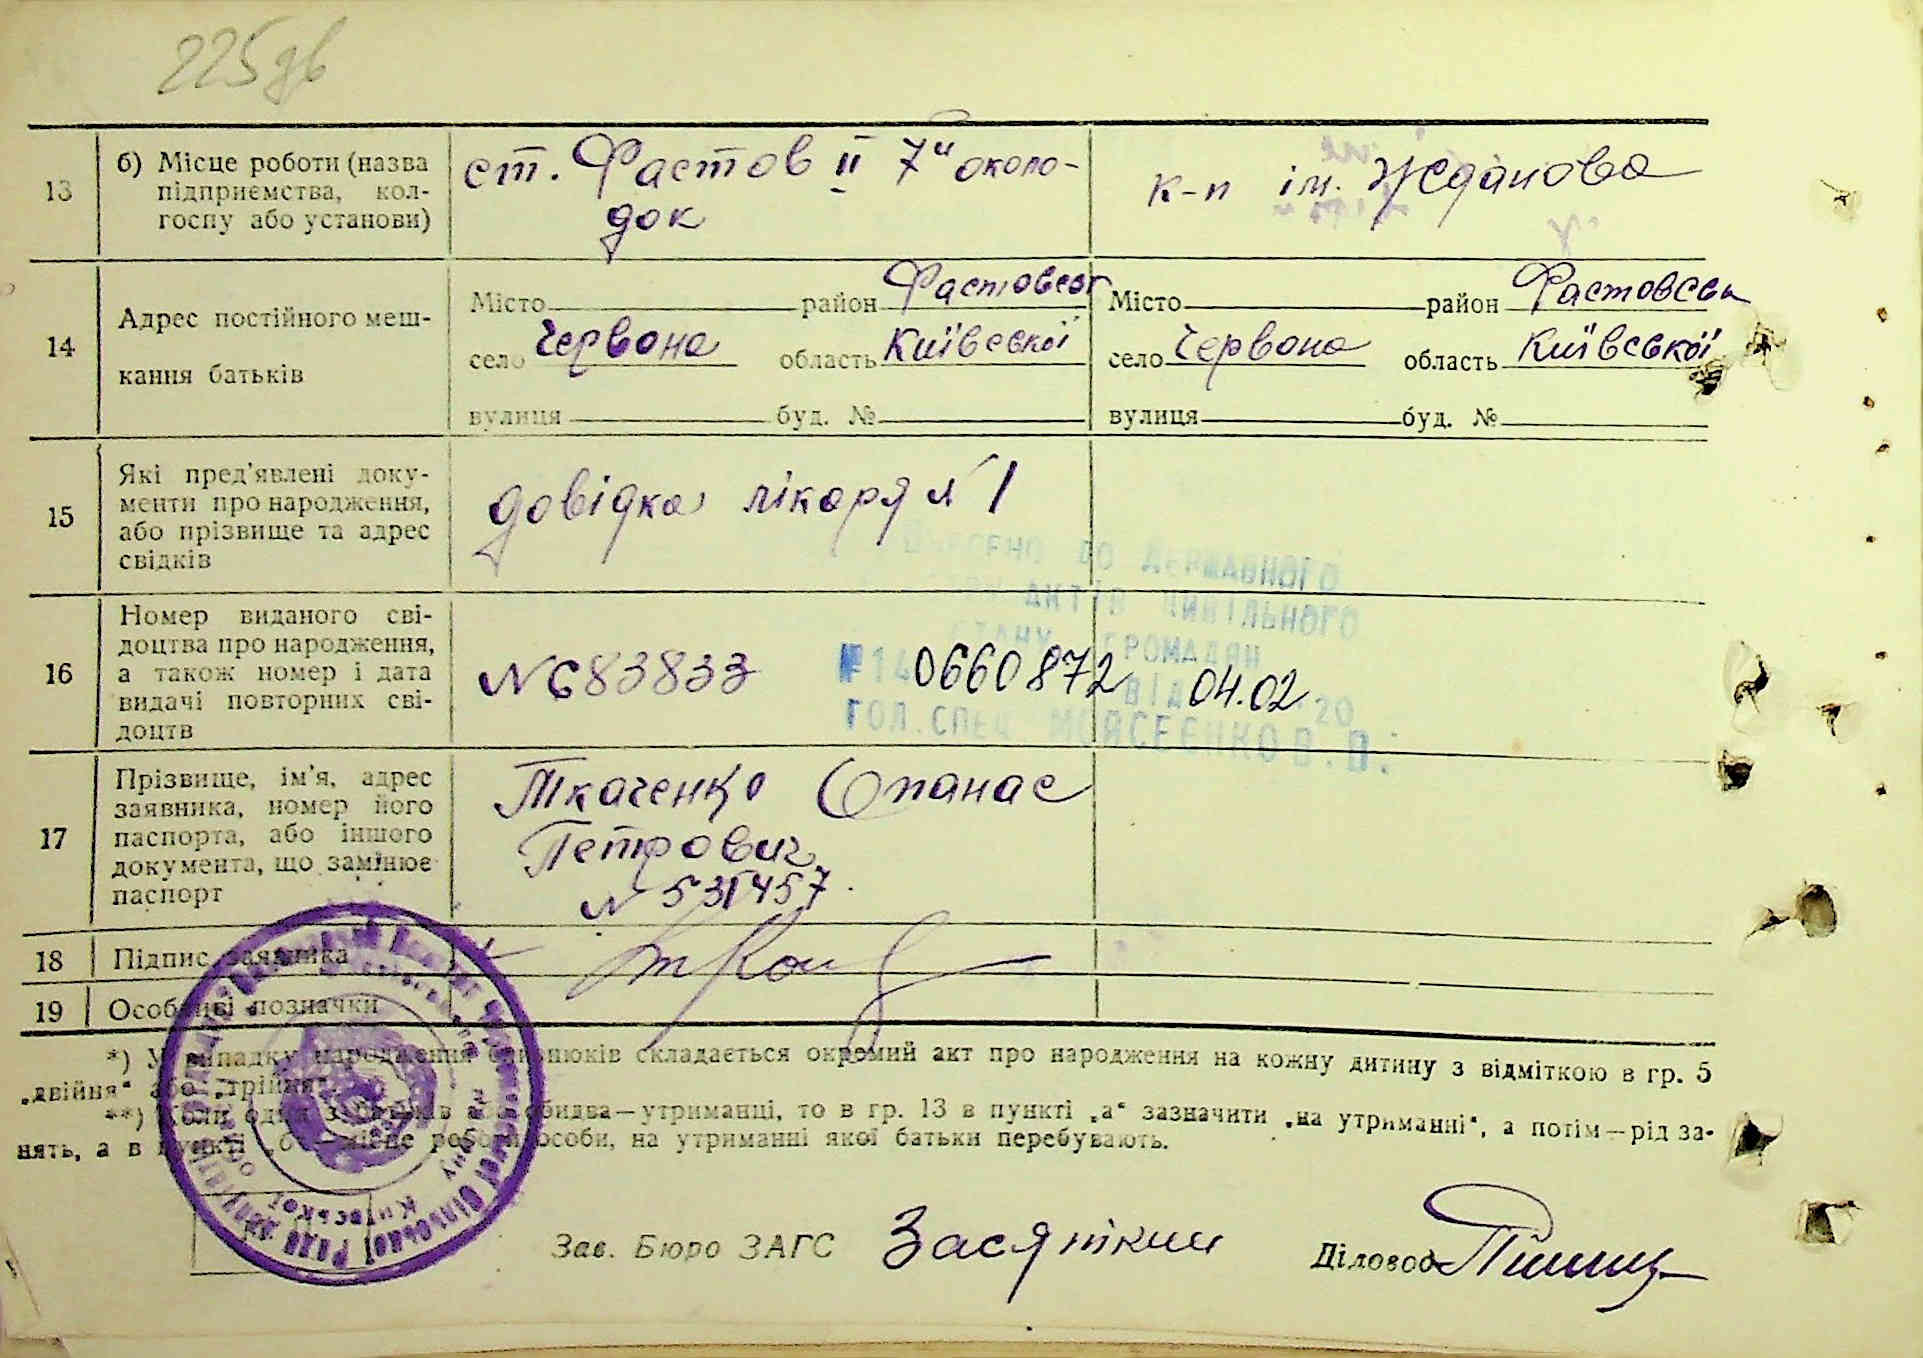 225зв
13
б) Місце роботи (назва
підприємства, кол-
госпу або установи)
ст. Фастов II 7й около-
док
к-п ім. Жданова
14
Адрес постійного меш-
кання батьків
Місто район Фастовськ
село Червона область Київської
вулиця буд. №
Місто район Фастовськ
село Червона область Київської
вулиця буд. №
15
Які пред'явлені доку-
менти про народження,
або прізвище та адрес
свідків
довідка лікаря № 1
ДО ДЕРЖАВНОГО
АКТІВ ЦИВІЛЬНОГО
СТАНУ ГРОМАДЯН
16
Номер виданого сві-
доцтва про народження,
а також номер і дата
видачі повторних сві-
доцтв
№ 683833
№14 0660872 ВІД 04.02. 20
ГОЛ. СПЕЦ. МОЯСЕЄНКО В. В.
17
Прізвище, ім'я, адрес
заявника, номер його
паспорта, або іншого
документа, що замінює
паспорт
Ткаченко Опанас
Петрович
№ 531457
18
Підпис заявника
19
Особливі позначки
*) У випадку народження близнюків складається окремий акт про народження на кожну дитину з відміткою в гр. 5
„двійня“ або „трійня“.
**) Коли один з батьків або обидва—утриманці, то в гр. 13 в пункті „а“ зазначити „на утриманні“, а потім—рід за-
нять, а в пункті „б“ місце роботи особи, на утриманні якої батьки перебувають.
Зав. Бюро ЗАГС
Діловод
Київської